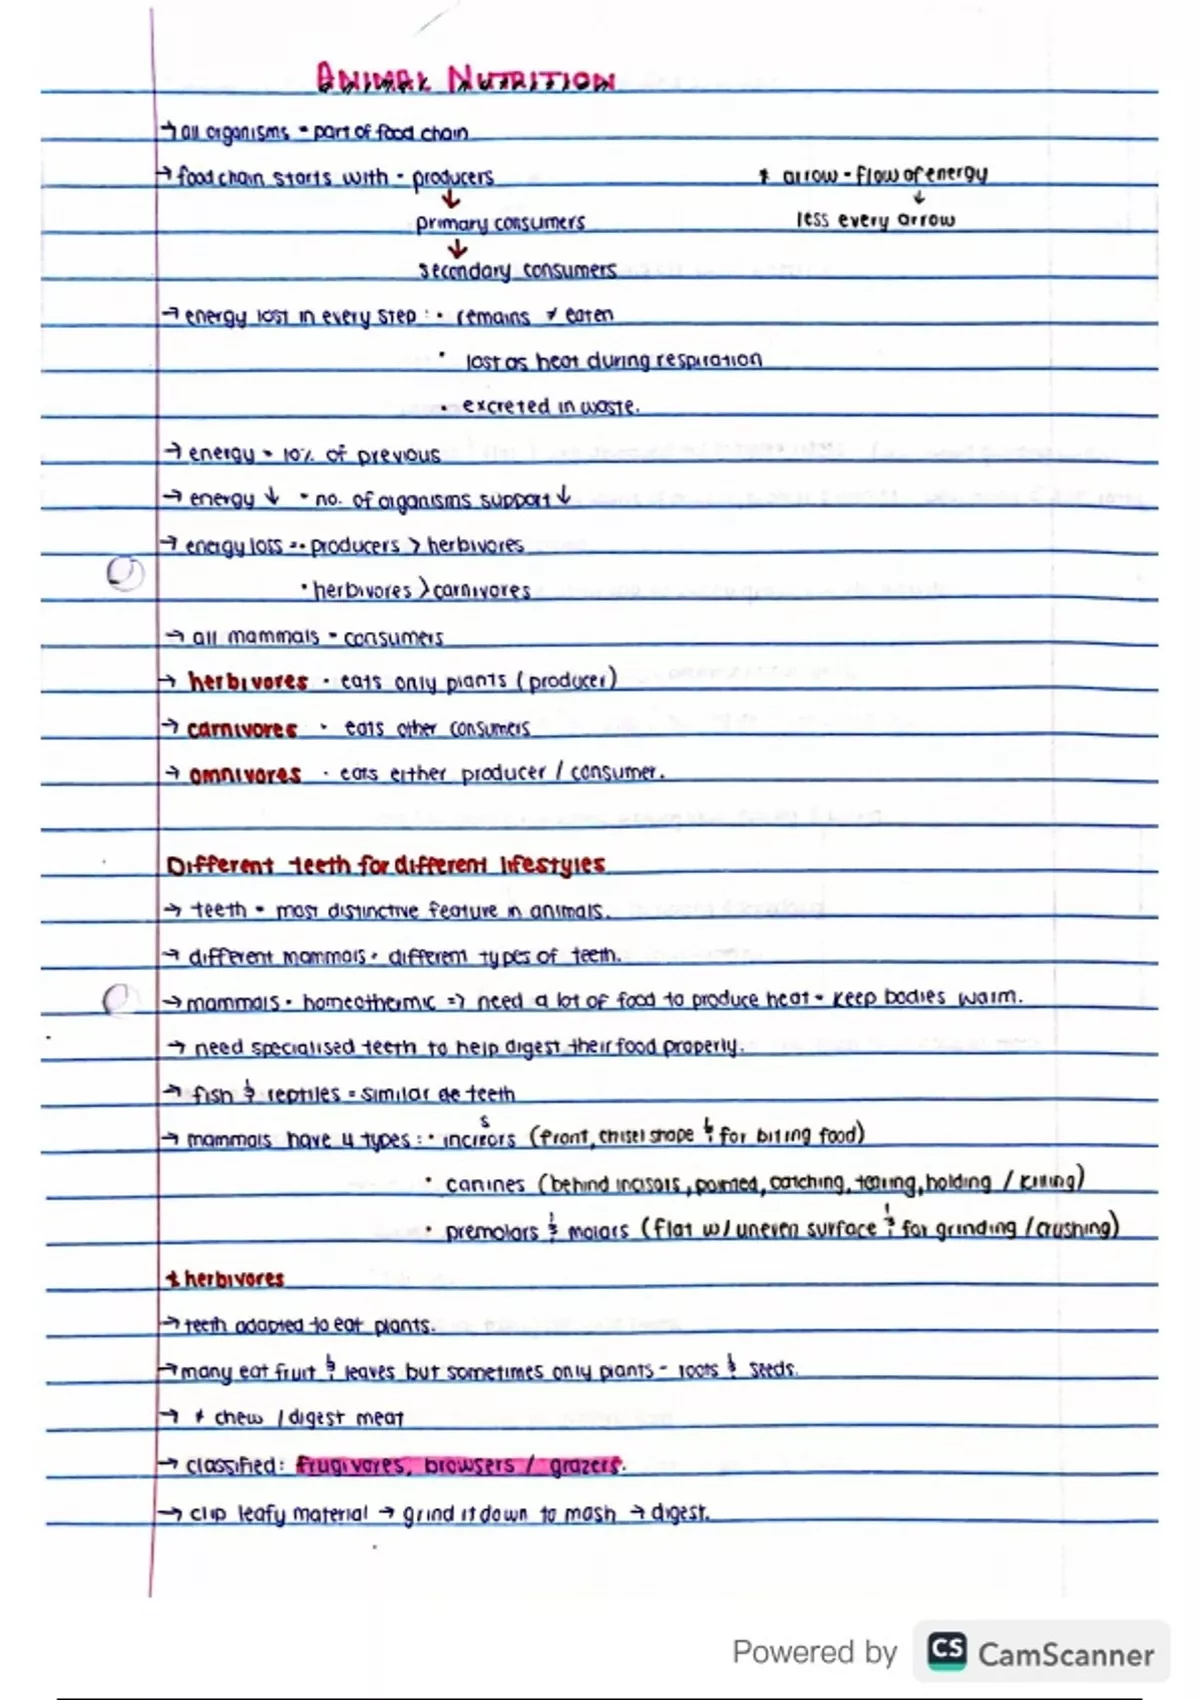 ANIMAL NUTRITION
→ all organisms - part of food chain
→ food chain starts with - producers
* arrow - flow of energy
↓
↓
primary consumers
less every arrow
↓
secondary consumers
→ energy lost in every step : • remains ≠ eaten
• lost as heat during respiration
• excreted in waste.
→ energy - 10% of previous
→ energy ↓ - no. of organisms support ↓
→ energy loss =• producers > herbivores
• herbivores > carnivores
→ all mammals - consumers
→ herbivores - eats only plants (producer)
→ carnivores - eats other consumers
→ omnivores - eats either producer / consumer.
Different teeth for different lifestyles
→ teeth - most distinctive feature in animals.
→ different mammals - different types of teeth.
→ mammals - homeothermic => need a lot of food to produce heat - keep bodies warm.
→ need specialised teeth to help digest their food properly.
→ fish & reptiles = similar teeth
→ mammals have 4 types : • incisors (front, chisel shape & for biting food)
• canines (behind incisors, pointed, catching, tearing, holding / killing)
• premolars & molars (flat w/ uneven surface & for grinding / crushing)
* herbivores
→ teeth adapted to eat plants.
→ many eat fruit & leaves but sometimes only plants - roots & seeds.
→ ≠ chew / digest meat
→ classified: frugivores, browsers / grazers.
→ clip leafy material → grind it down to mash → digest.
Powered by CS CamScanner